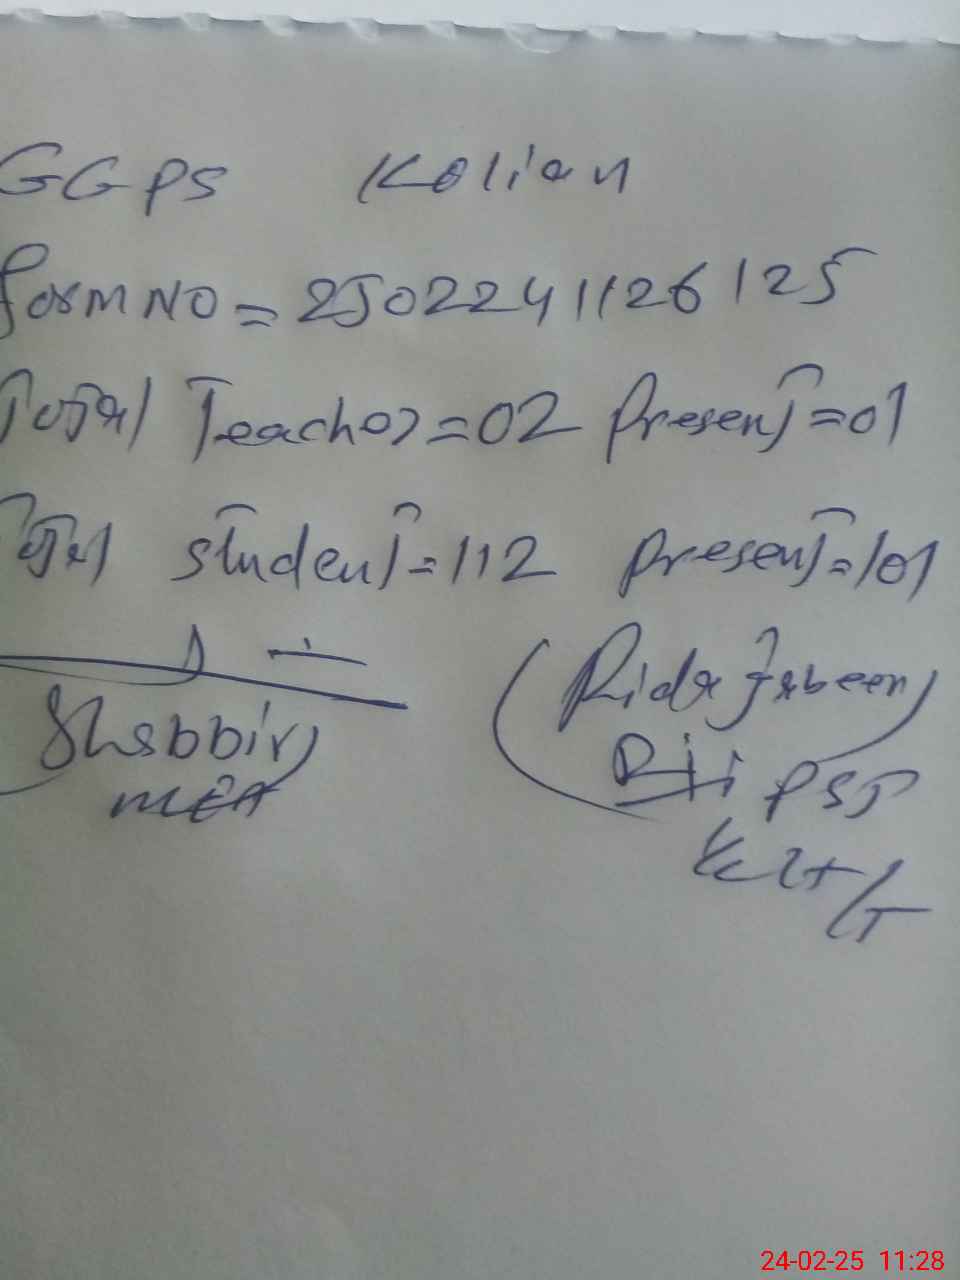 GGPS Kolian
Form NO = 2502241126125
Total Teacher = 02 Present = 01
Total Student = 112 Present = 101
Shabbir
MEA
(Rida Jabeen)
PST
24-02-25 11:28